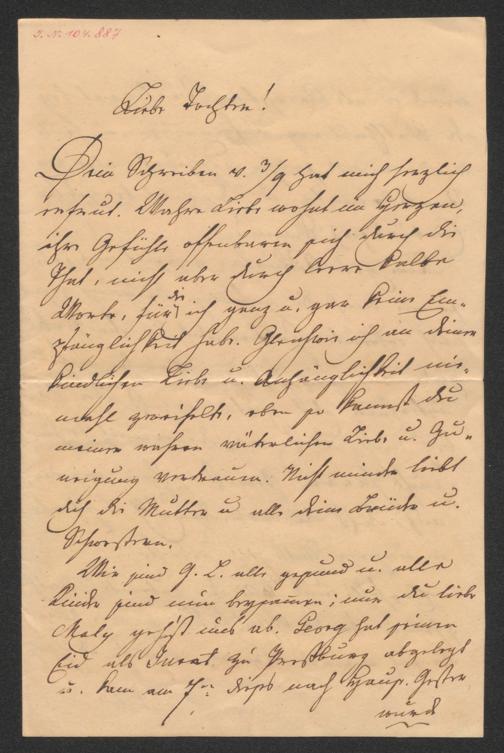 I.N. 104.887
Liebe Tochter!
Dein Schreiben v. 3/9 hat mich herzlich
erfreut. Wahre Liebe wohnt im Herzen,
ihre Gefühle offenbaren sich durch die
That, nicht aber durch leere kalte
Worte, für die ich ganz u. gar keine Em-
pfänglichkeit habe. Gleichwie ich an deiner
kindlichen Liebe u. Anhänglichkeit nie-
mahl zweifelte, eben so kannst du
meiner wahren väterlichen Liebe u. Zu-
neigung vertrauen. Nicht minder liebt
dich die Mutter u alle deine Brüder u.
Schwestern.
Wir sind G. L. alle gesund u. alle
Kinder sind nun beysammen; nur du liebe
Maly gehst uns ab. Georg hat seinen
Eid als Jurat zu Preßburg abgelegt
u. kam am 7ten dieß nach Haus. Gestern
wurde